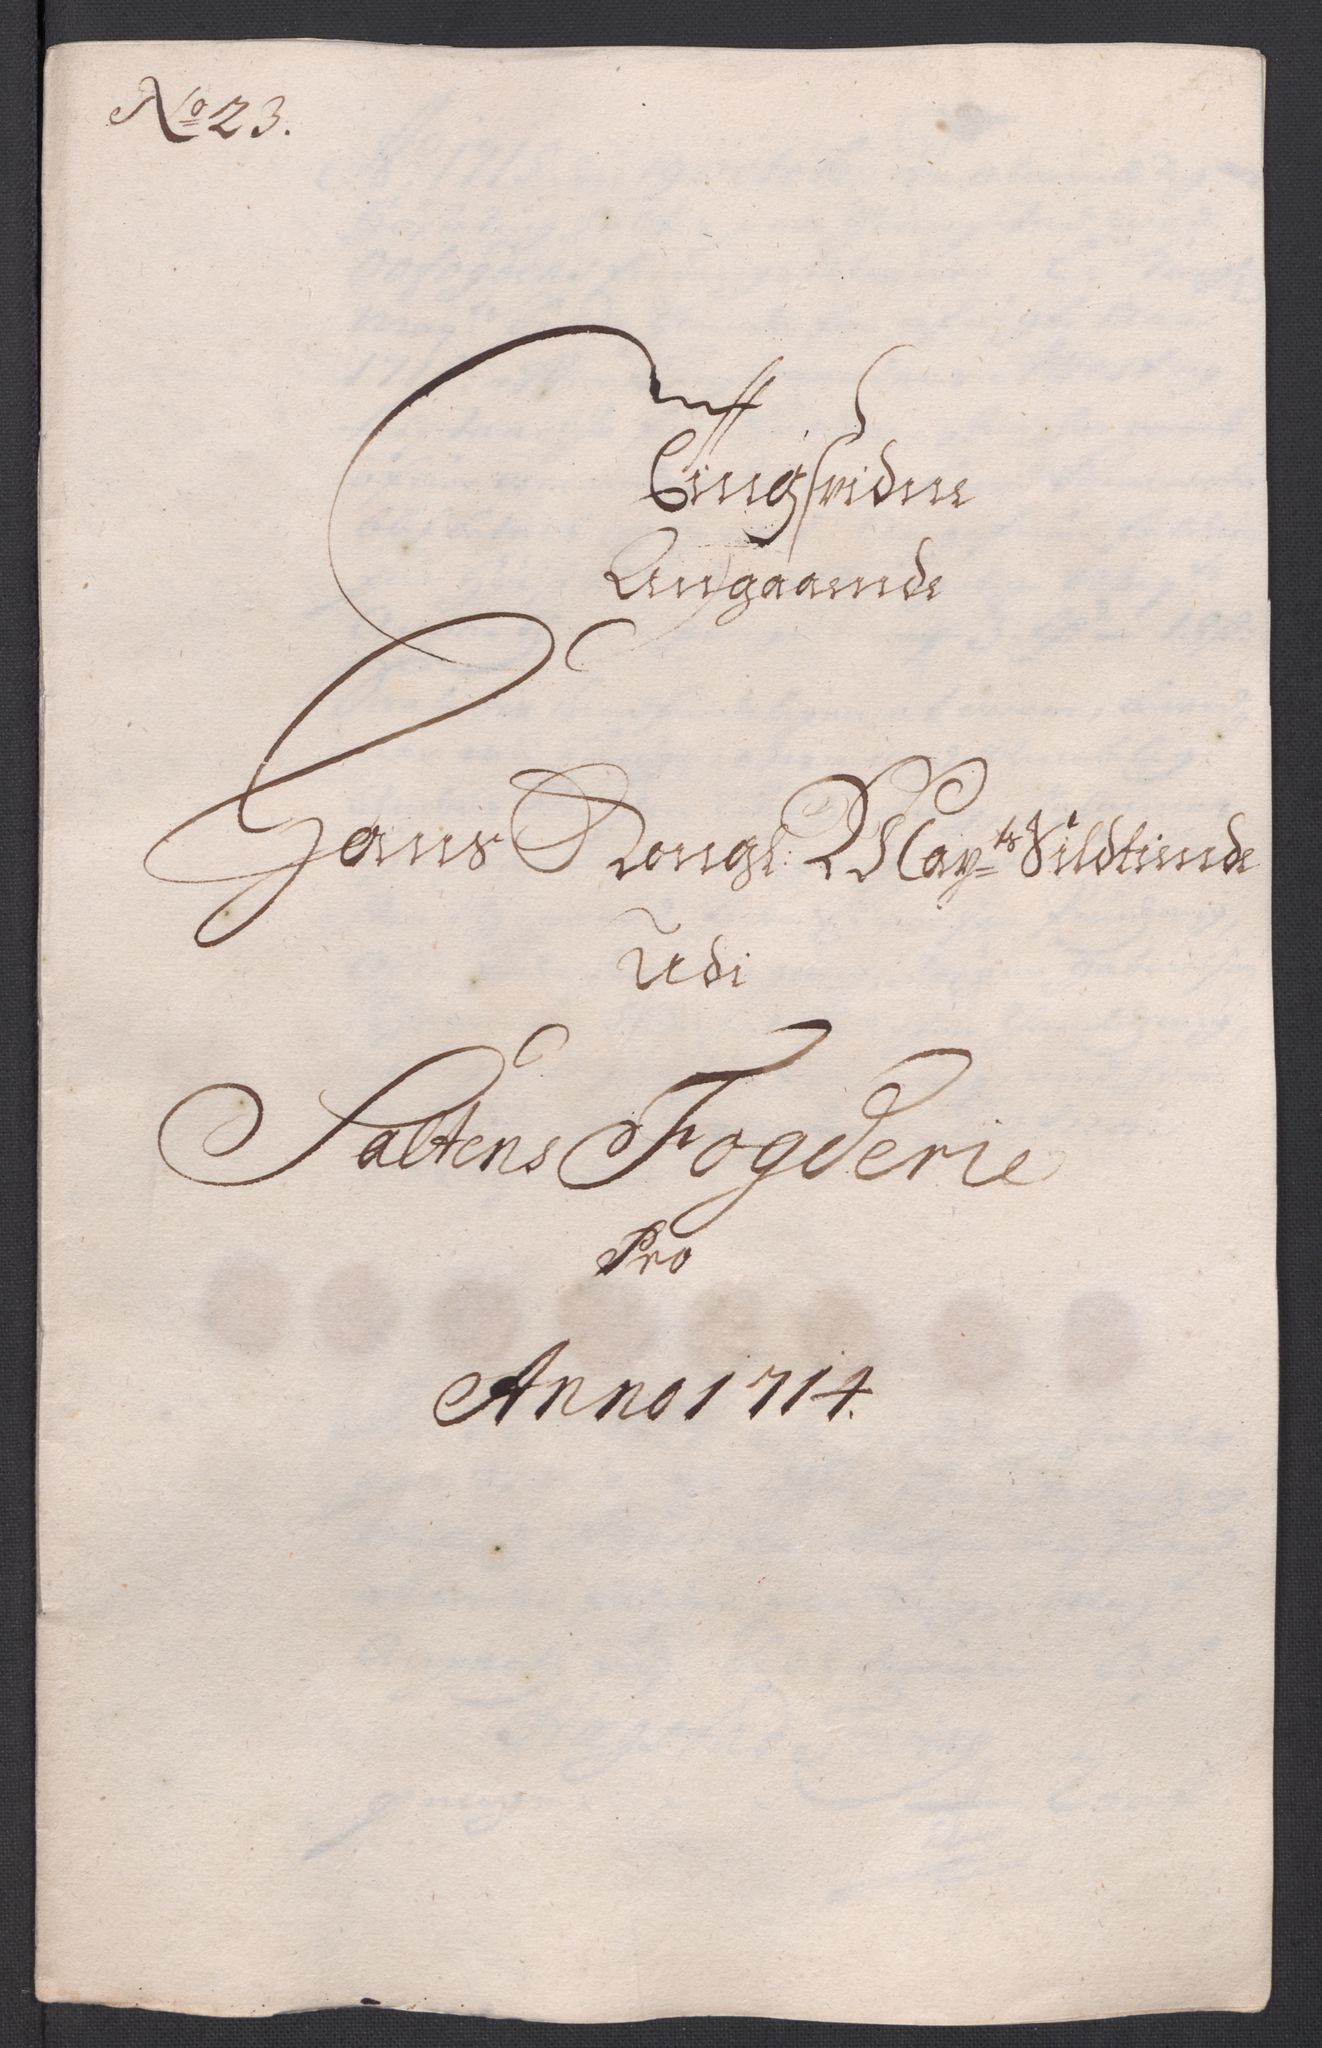 No 23.
Tingsvidne
Angaaende
Hans Kongl: Mayts Sildtiende
Udi
Saltens Fogderie
Pro
Anno 1714.